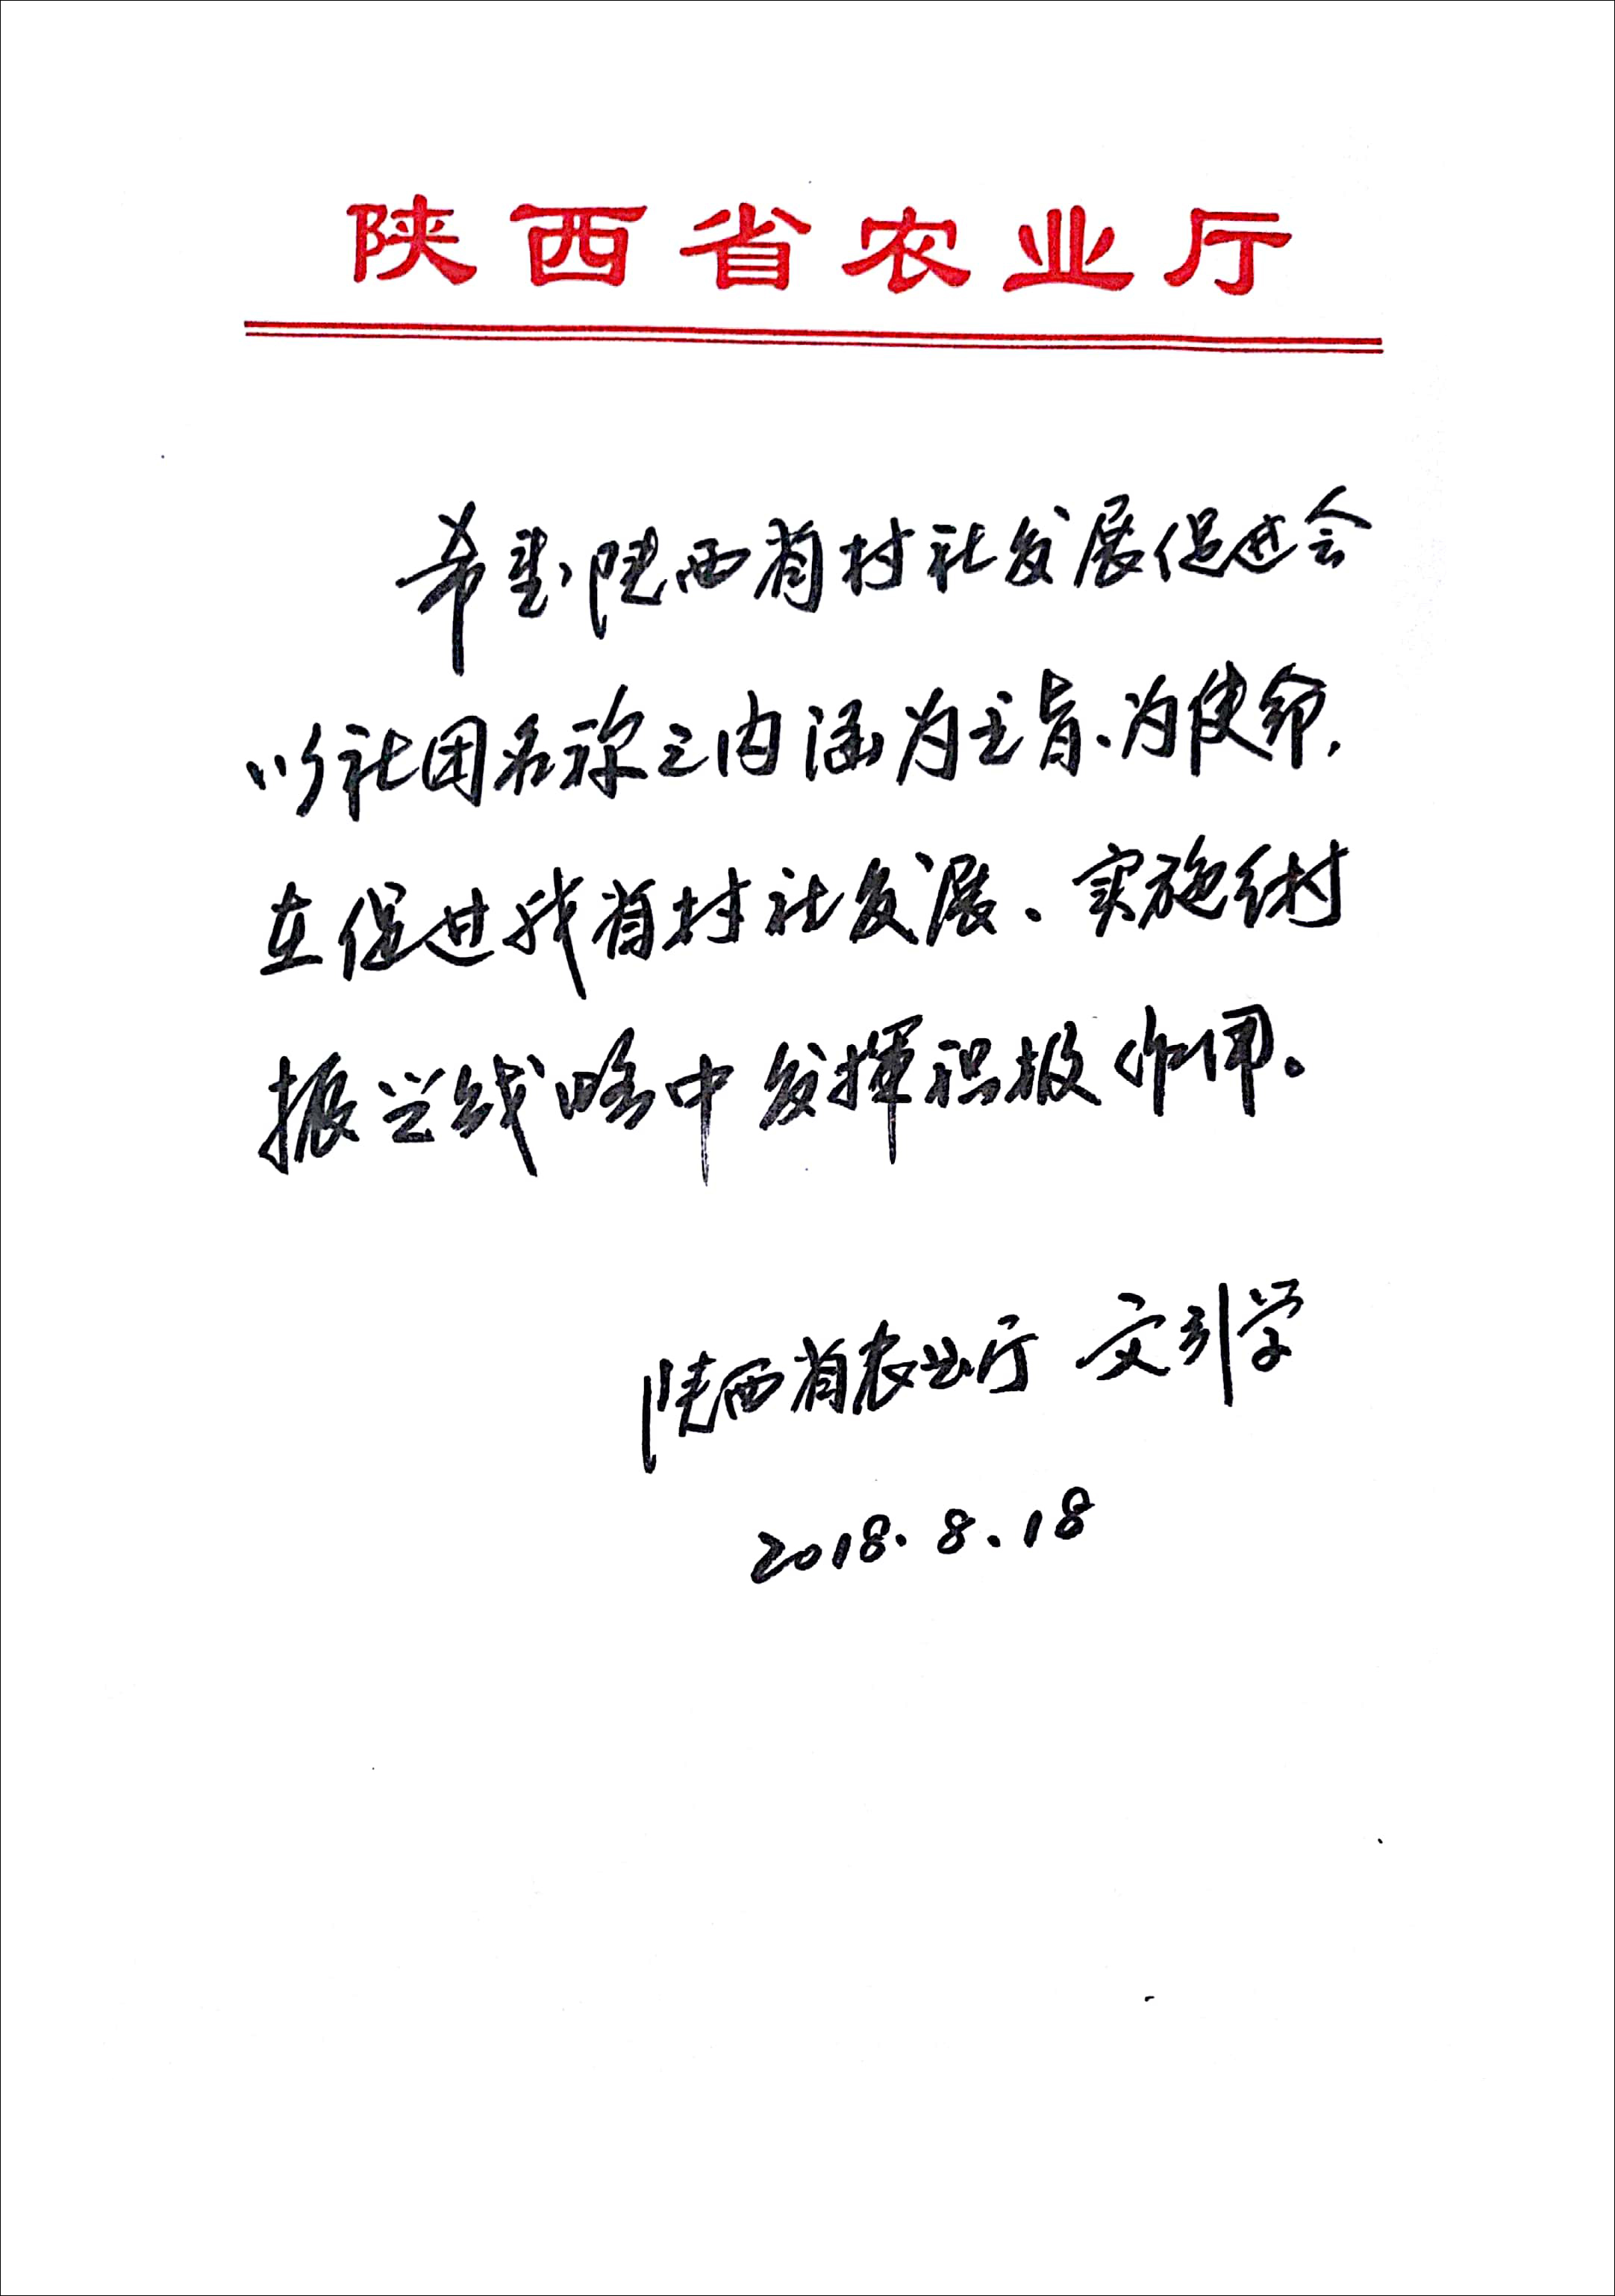 陕西省农业厅
希望陕西省村社发展促进会
以社团名称之内涵为主旨、为使命,
在促进我省村社发展、实施乡村
振兴战略中发挥积极作用。
陕西省农业厅 文引学
2018.8.18